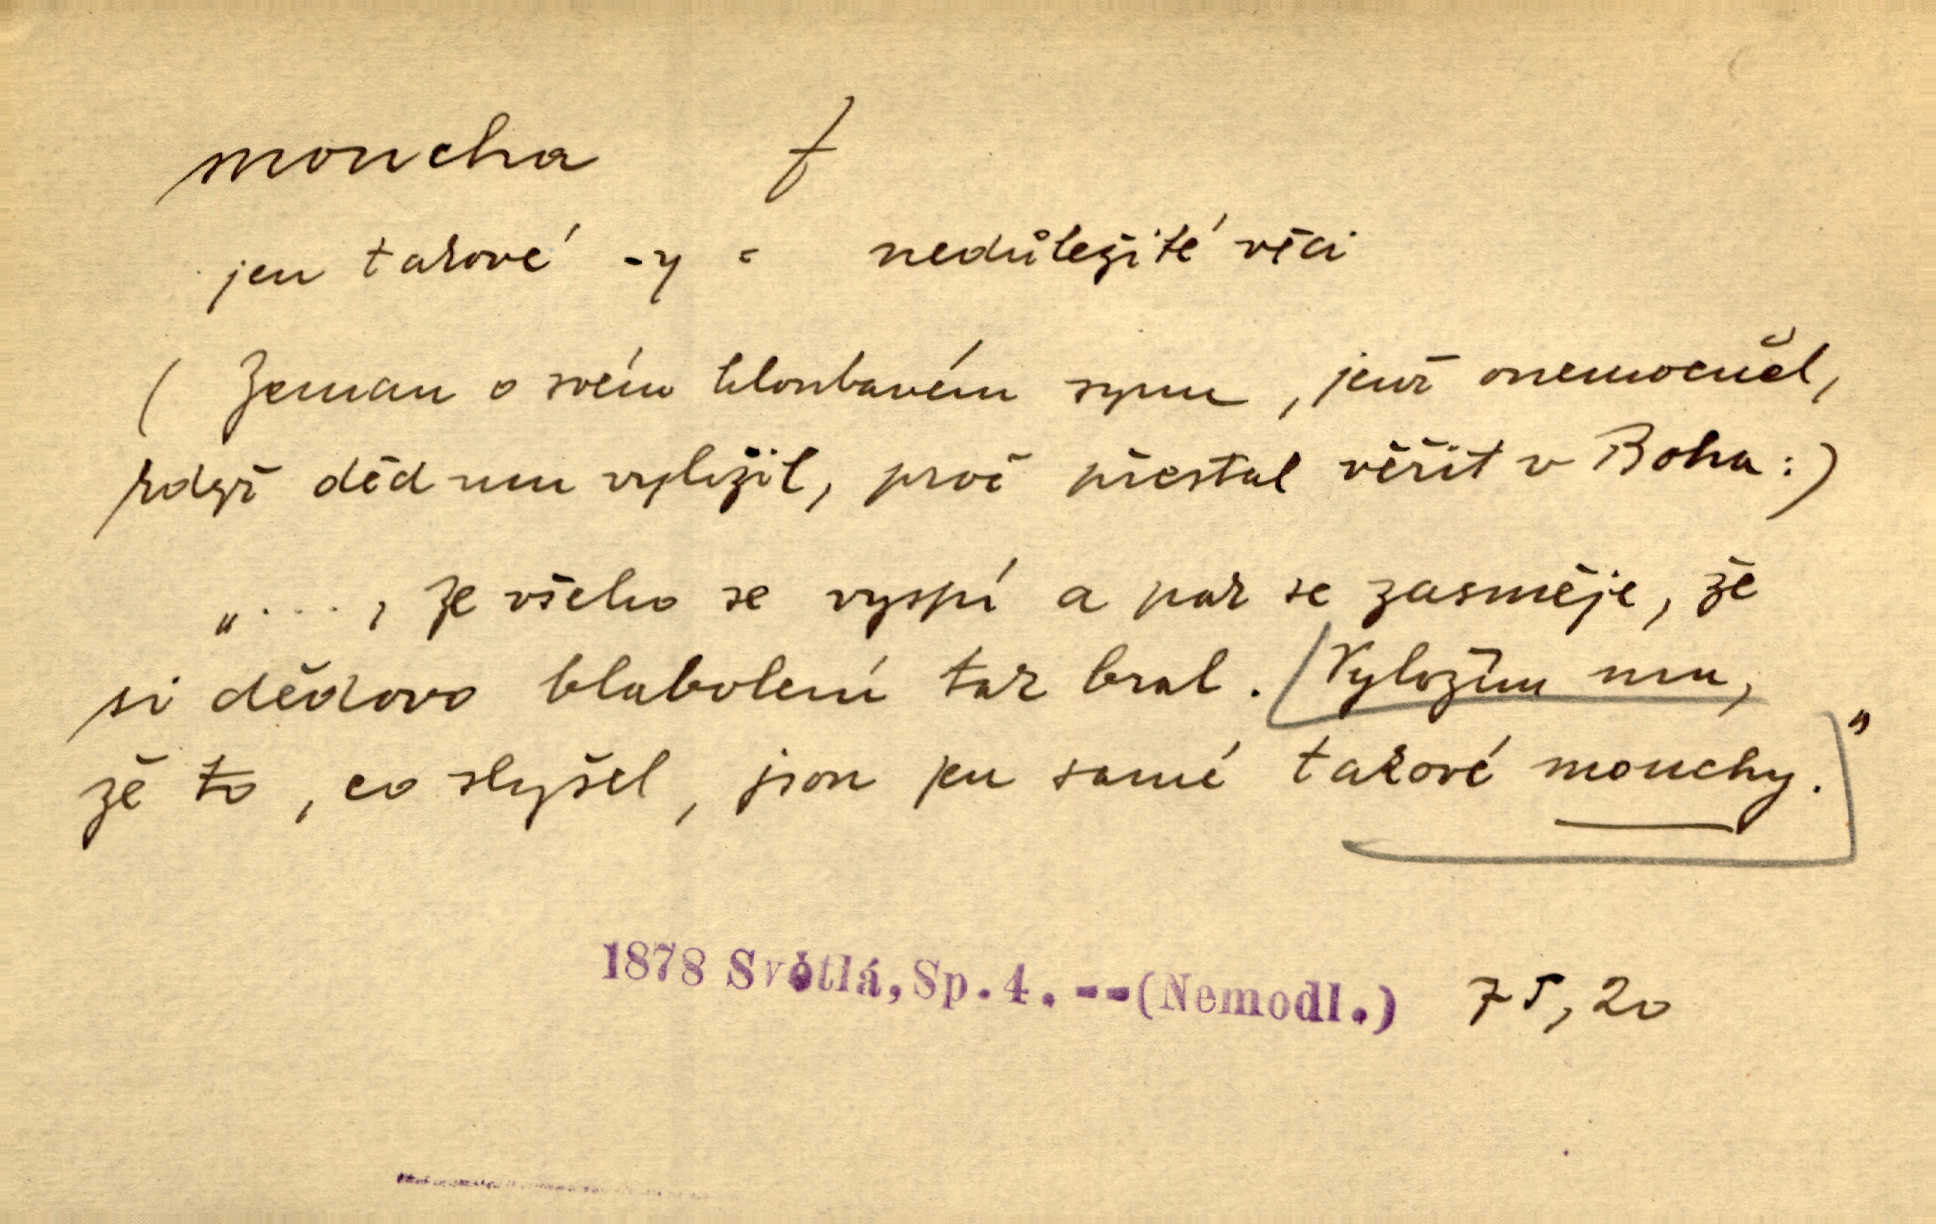 moucha f
jen takové -y = nedůležité věci
( Zeman o svém hloubavém synu, jenž onemocněl,
když děd mu vyložil, proč přestal věřit v Boha:)
„...., ze všeho se vyspí a pak se zasměje, že
si dědovo blabolení tak bral. Vyložím mu,
že to, co slyšel, jsou jen samé takové mouchy."
1878 Světlá, Sp. 4. --(Nemodl.) 75, 20